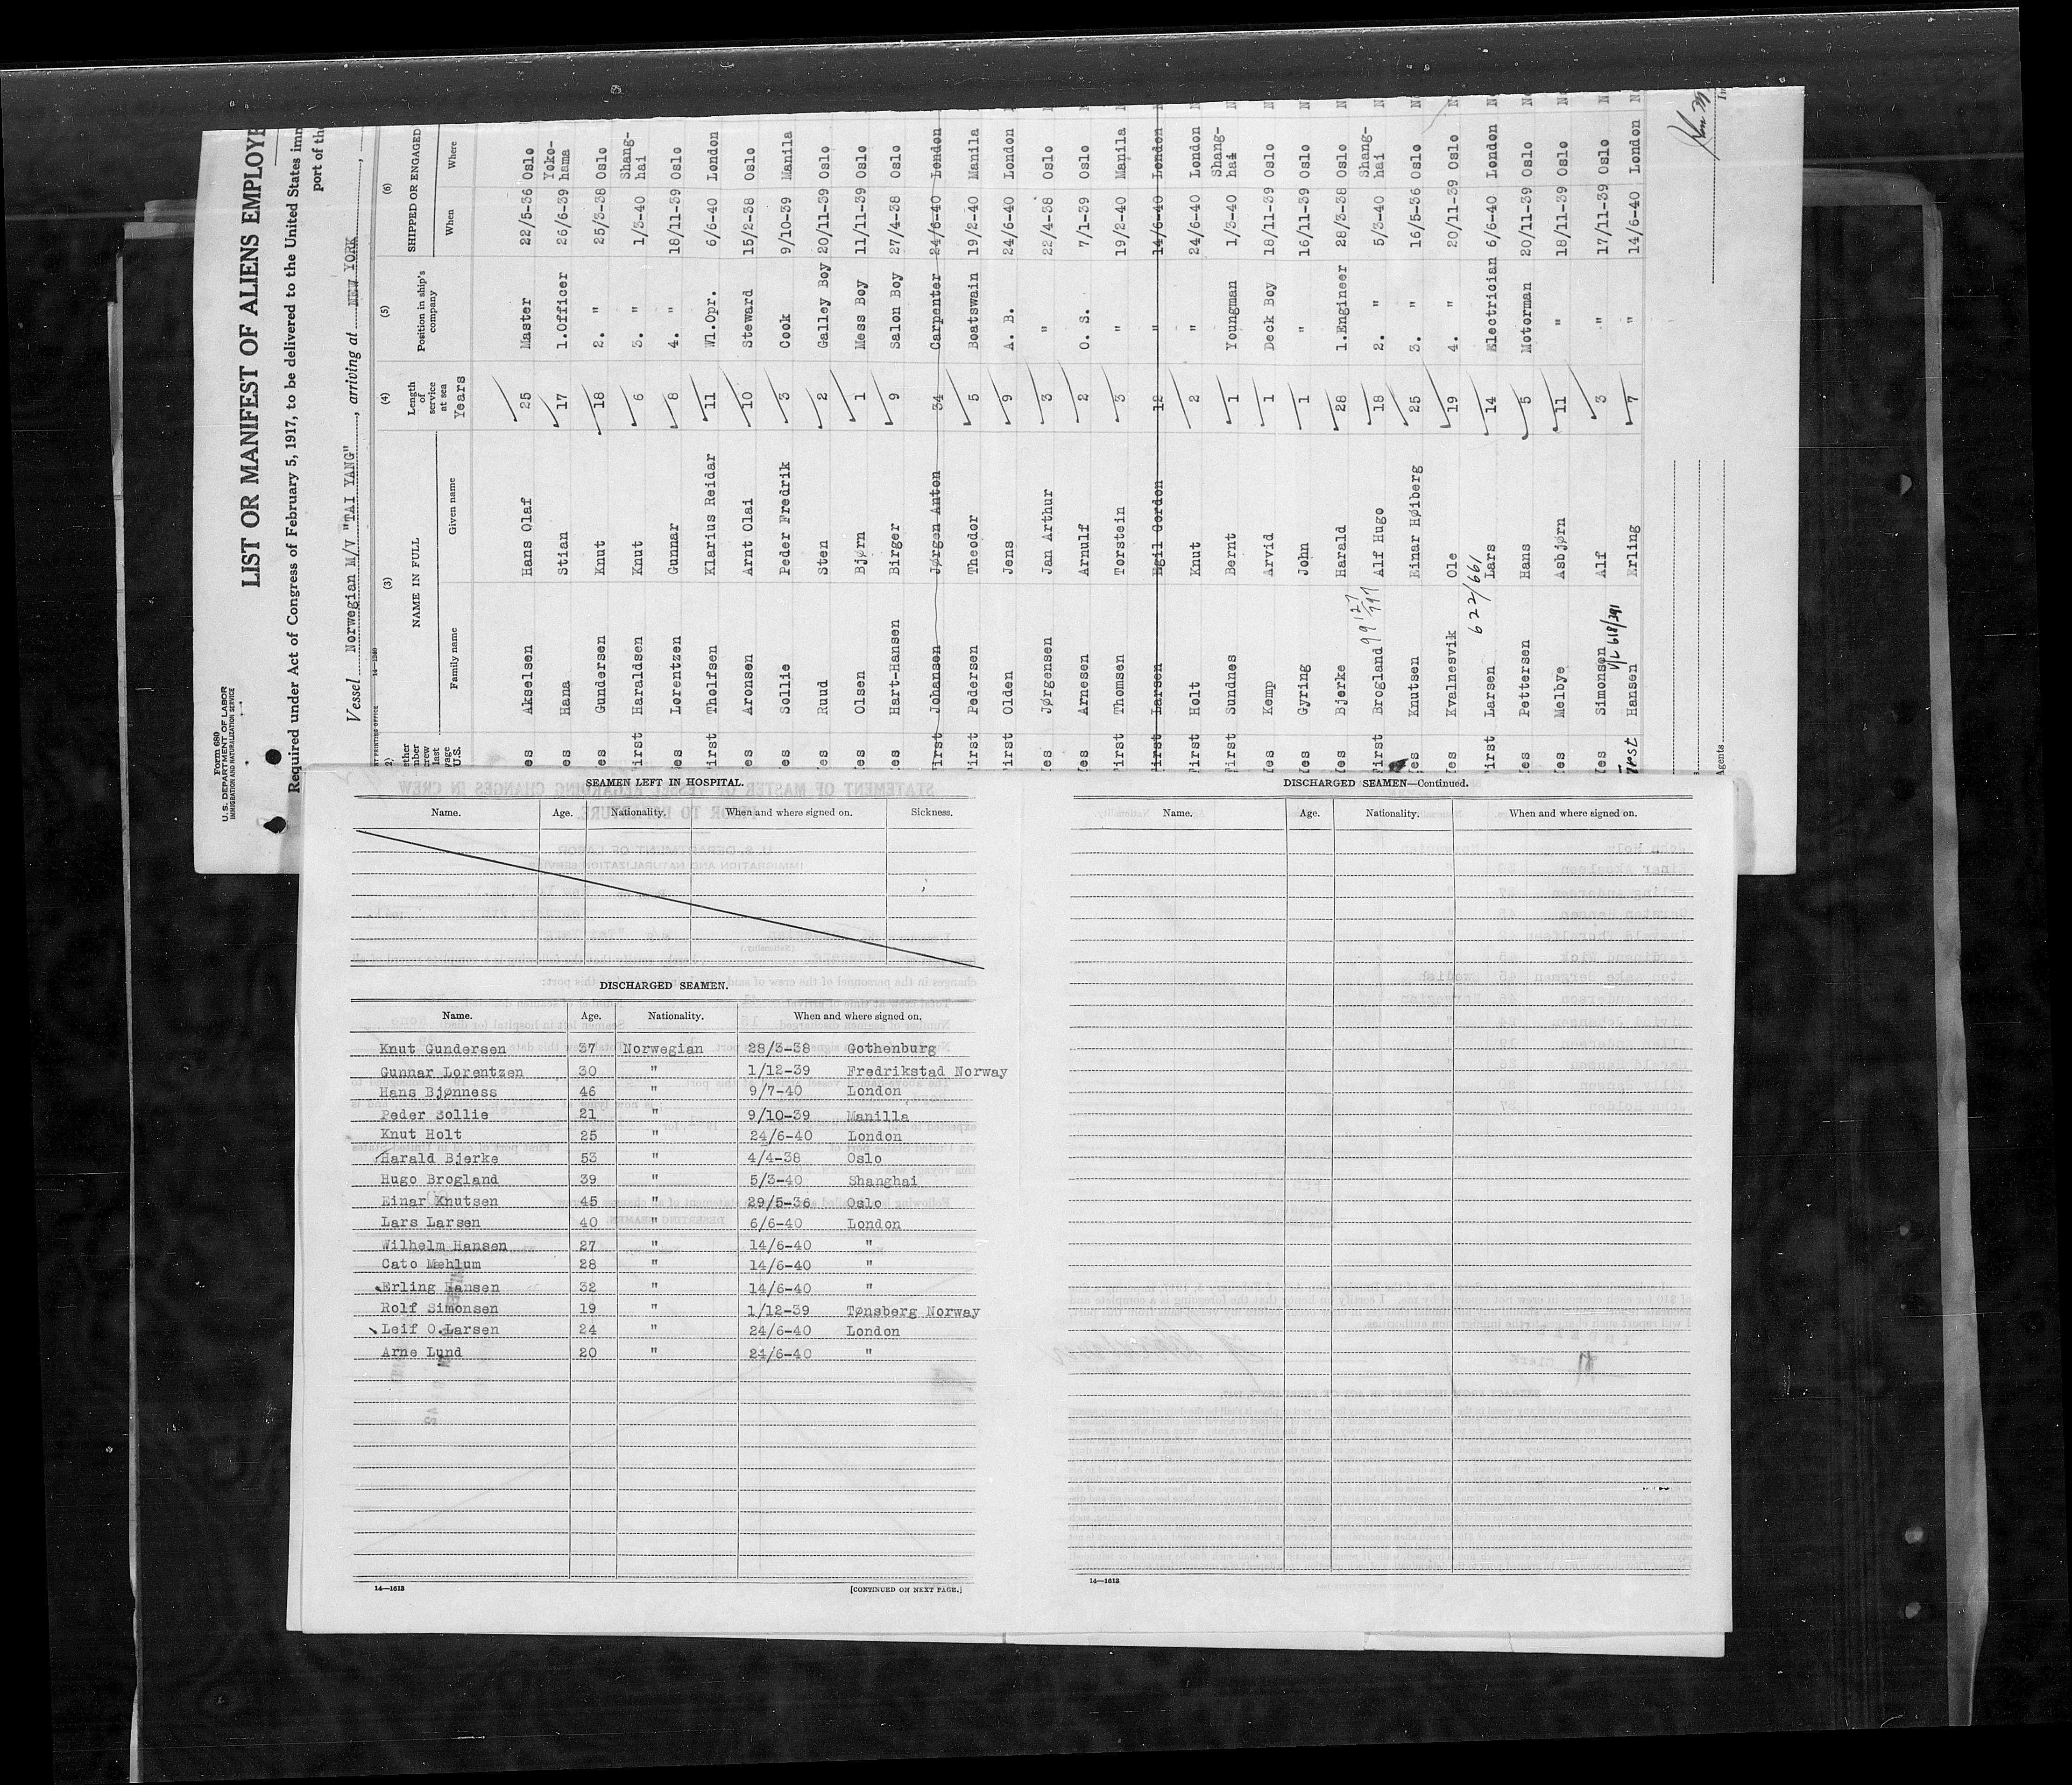 Form 680
U. S. DEPARTMENT OF LABOR
IMMIGRATION AND NATURALIZATION SERVICE
LIST OR MANIFEST OF ALIENS EMPLOYE
Required under Act of Congress of February 5, 1917, to be delivered to the United States imm
port of the
Vessel Norwegian M/V "TAI YANG", arriving at NEW YORK
14—1240
(3) (4) (5) (6)
NAME IN FULL Length of service at sea Position in ship's company SHIPPED OR ENGAGED
Family name Given name Years When Where
es Akselsen Hans Olaf 25 Master 22/5-36 Oslo
es Hana Stian 17 1.Officer 26/6-39 Yoko-hama
es Gundersen Knut 18 2. " 25/3-38 Oslo
irst Haraldsen Knut 6 3. " 1/3-40 Shang-hai
es Lorentzen Gunnar 8 4. " 18/11-39 Oslo
irst Tholfsen Klarius Reidar 11 Wl.Opr. 6/6-40 London
es Aronsen Arnt Olai 10 Steward 15/2-38 Oslo
es Sollie Peder Fredrik 3 Cook 9/10-39 Manila
es Ruud Sten 2 Galley Boy 20/11-39 Oslo
es Olsen Bjørn 1 Mess Boy 11/11-39 Oslo
es Hart-Hansen Birger 9 Salon Boy 27/4-38 Oslo
irst Johansen Jørgen Anton 34 Carpenter 24/6-40 London
irst Pedersen Theodor 5 Boatswain 19/2-40 Manila
irst Olden Jens 9 A. B. 24/6-40 London
es Jørgensen Jan Arthur 3 " 22/4-38 Oslo
es Arnesen Arnulf 2 O. S. 7/1-39 Oslo
irst Thomsen Torstein 3 " 19/2-40 Manila
irst Larsen Egil Gordon 12 " 14/6-40 London
irst Holt Knut 2 " 24/6-40 London
irst Sundnes Bernt 1 Youngman 1/3-40 Shang-hai
es Kemp Arvid 1 Deck Boy 18/11-39 Oslo
es Gyring John 1 " 16/11-39 Oslo
es Bjerke Harald 28 1.Engineer 28/3-38 Oslo
irst Brogland Alf Hugo 18 2. " 5/3-40 Shang-hai
es Knutsen Einar Høiberg 25 3. " 16/5-36 Oslo
es Kvalnesvik Ole 19 4. " 20/11-39 Oslo
622/661
irst Larsen Lars 14 Electrician 6/6-40 London
es Pettersen Hans 5 Motorman 20/11-39 Oslo
es Melbye Asbjørn 11 " 18/11-39 Oslo
es Simonsen Alf 3 " 17/11-39 Oslo
First Hansen Erling 7 " 14/6-40 London
Agents
SEAMEN LEFT IN HOSPITAL.
Name. Age. Nationality. When and where signed on. Sickness.
DISCHARGED SEAMEN.
Name. Age. Nationality. When and where signed on.
Knut Gundersen 37 Norwegian 28/3-38 Gothenburg
Gunnar Lorentzen 30 " 1/12-39 Fredrikstad Norway
Hans Bjønness 46 " 9/7-40 London
Peder Sollie 21 " 9/10-39 Manilla
Knut Holt 25 " 24/6-40 London
Harald Bjerke 53 " 4/4-38 Oslo
Hugo Brogland 39 " 5/3-40 Shanghai
Einar Knutsen 45 " 29/5-36 Oslo
Lars Larsen 40 " 6/6-40 London
Wilhelm Hansen 27 " 14/6-40 "
Cato Mæhlum 28 " 14/6-40 "
Erling Hansen 32 " 14/6-40 "
Rolf Simonsen 19 " 1/12-39 Tønsberg Norway
Leif O.Larsen 24 " 24/6-40 London
Arne Lund 20 " 24/6-40 "
14—1613 [CONTINUED ON NEXT PAGE.]
DISCHARGED SEAMEN—Continued.
Name. Age. Nationality. When and where signed on.
14—1613